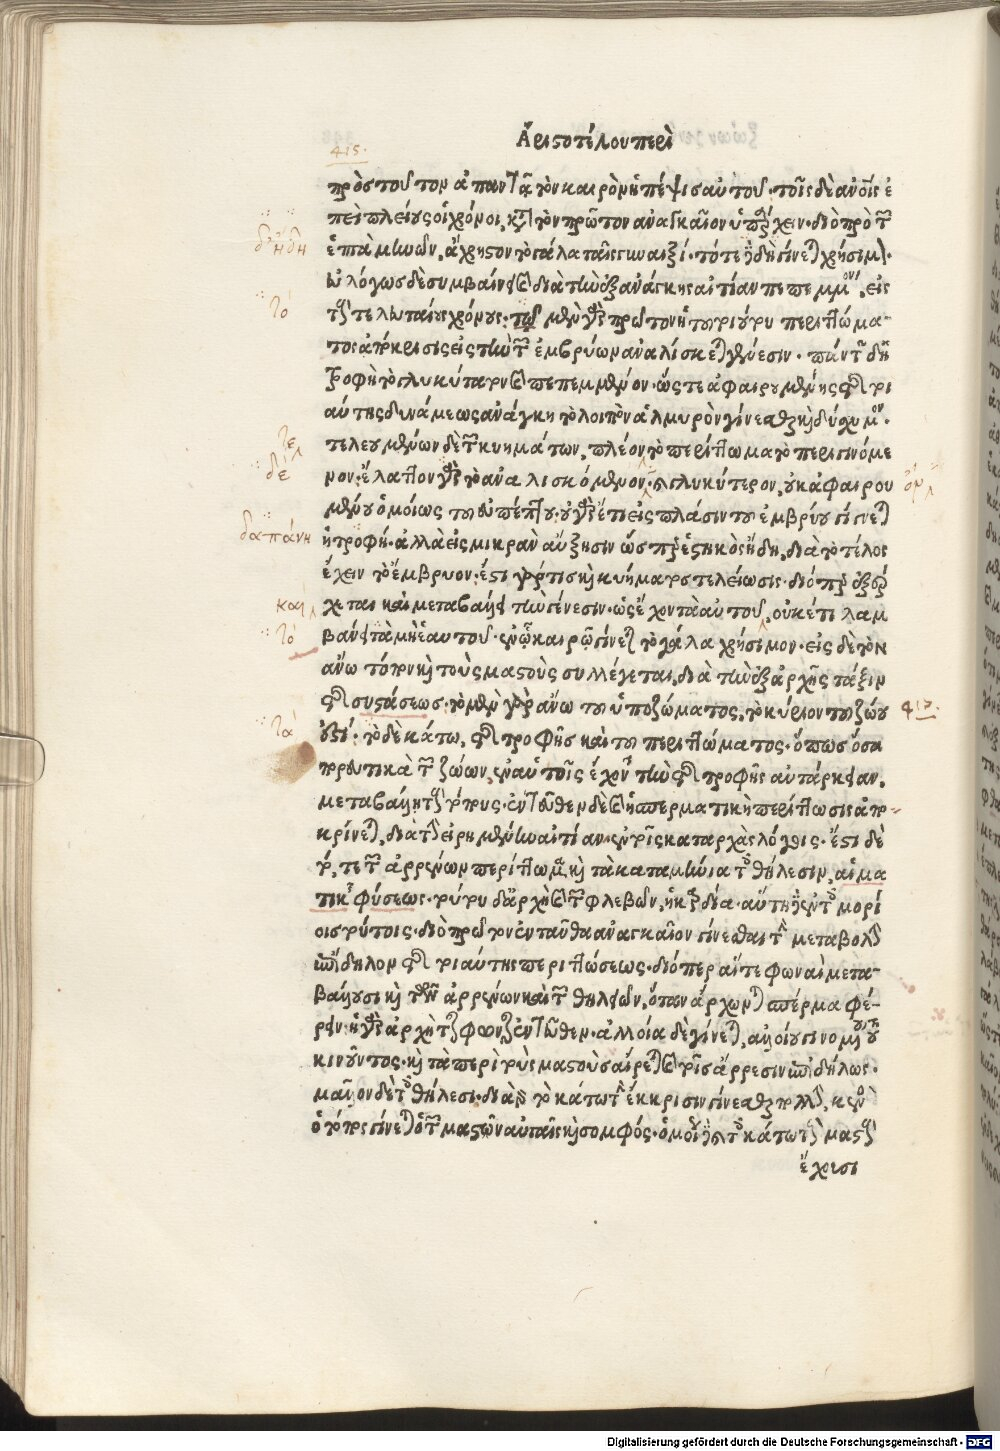 Ἀριστοτέλους περὶ
415.
πρὸς τοῦτον ἀπαντᾷ τὸν καιρὸν ἡ πέψις αὐτοῦ. τοῖς δὲ ἀνοῖς ἐ
πεὶ πλείους οἱ χρόνοι, κατὰ τὸν πρῶτον ἀναγκαῖον ὑπάρχειν. διὸ πρὸ τῶν
ἑπτὰ μηνῶν, ἄχρηστον τὸ γάλα ταῖς γυναιξί. τότε ἤδη γίνεται χρήσιμον.
εὐλόγως δὲ συμβαίνει καὶ διὰ τὴν ἐξ ἀνάγκης αἰτίαν πεπεμμένον, εἰς
τοὺς τελευταίους χρόνους. τῶ μὲν γὰρ πρῶτον ἡ τοιούτου περιττώμα-
τος ἀπόκρισις εἰς τὴν τῶν ἐμβρύων ἀναλίσκεται γένεσιν. πάντων δὴ ἡ
τροφὴ τὸ γλυκύτατον καὶ πεπεμμένον. ὥστε ἀφαιρουμένης τῆς τοι
αύτης δυνάμεως ἀνάγκη τὸ λοιπὸν ἁλμυρὸν γίνεσθαι καὶ δύσχυμον.
τελευμένων δὲ τῶν κυημάτων, πλέον τὸ περίττωμα τὸ περιγινόμε
νον. ἔλαττον γὰρ τὸ ἀναλισκόμενον. καὶ γλυκύτερον, οὐκ ἀφαιρου
μένου ὁμοίως τοῦ εὐπέπτου. οὐ γὰρ ἔτι εἰς πλάσιν τοῦ ἐμβρύου γίνεται
ἡ τροφή. ἀλλὰ εἰς μικρὰν αὔξησιν ὥσπερ ἑστηκὸς ἤδη, διὰ τὸ τέλος
ἔχειν τὸ ἔμβρυον. ἔστι γάρ τις καὶ κυήματος τελείωσις. διόπερ ἐξέρ
χεται καὶ μεταβάλλει τὴν γένεσιν. ὡς ἔχοντα αὐτοῦ, οὐκέτι λαμ
βάνει τὰ μὴ ἑαυτοῦ. ἐν ᾧ καιρῷ γίνεται τὸ γάλα χρήσιμον. εἰς δὲ τὸν
ἄνω τόπον καὶ τοὺς μαστοὺς συλλέγεται, διὰ τὴν ἐξ ἀρχῆς τάξιν
τῆς συστάσεως. τὸ μὲν γὰρ ἄνω τοῦ ὑποζώματος, τὸ κύριον τοῦ ζώου
ἐστί. τὸ δὲ κάτω, τῆς τροφῆς καὶ τοῦ περιττώματος. ὅπως ὅσα
πορευτικὰ τῶν ζώων, ἐν αὑτοῖς ἔχοντα τὴν τῆς τροφῆς αὐτάρκειαν,
μεταβάλλῃ τοὺς τόπους. ἐντεῦθεν δὲ καὶ ἡ σπερματικὴ περίττωσις ἀπο-
κρίνεται, διὰ τὴν εἰρημένην αἰτίαν ἐν τοῖς καταρχὰς λόγοις. ἔστι δὲ
τό, τε τῶν ἀρρένων περίττωμα, καὶ τὰ καταμήνια τοῖς θήλεσιν, αἱμα
τικῆς φύσεως. τούτου δ' ἀρχὴ καὶ τῶν φλεβῶν, ἡ καρδία. αὕτη δ' ἐν τοῖς μορί
οις τούτοις. διὸ πρῶτον ἐνταῦθα ἀναγκαῖον γίνεσθαι τὴν μεταβολὴν
ἐπίδηλον τῆς τοιαύτης περιττώσεως. διόπερ αἵ τε φωναὶ μετα-
βάλλουσι καὶ τῶν ἀρρένων καὶ τῶν θηλειῶν, ὅταν ἄρχωνται σπέρμα φέ-
ρειν. ἡ γὰρ ἀρχὴ τῆς φωνῆς ἐντεῦθεν. ἀλλοία δὲ γίνεται, ἀλλοίου γινομένου τοῦ
κινοῦντος. καὶ τὰ περὶ τοὺς μαστοὺς αἴρεται καὶ τοῖς ἄρρεσιν ἐπιδήλως.
μᾶλλον δὲ τοῖς θήλεσι. διὰ γὰρ τὸ κάτω τὴν ἔκκρισιν γίνεσθαι πολλήν, κενὸς
ὁ τόπος γίνεται ὁ τῶν μαστῶν αὐταῖς καὶ σομφός. ὁμοίως δὲ καὶ τοῖς κάτω τοὺς μαστοὺς
ἔχουσι
δ' ἤδη
τὸ
τε
δέ
ὂν
δαπάνη
καὶ
τὸ
τὰ
417.